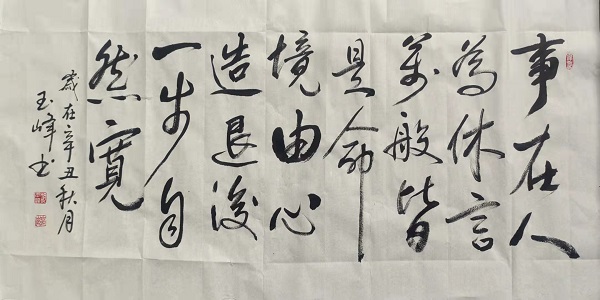 事在人
為休言
萬般皆
是命
境由心
造退後
一步自
然寬
歲在辛丑秋月
玉峰书